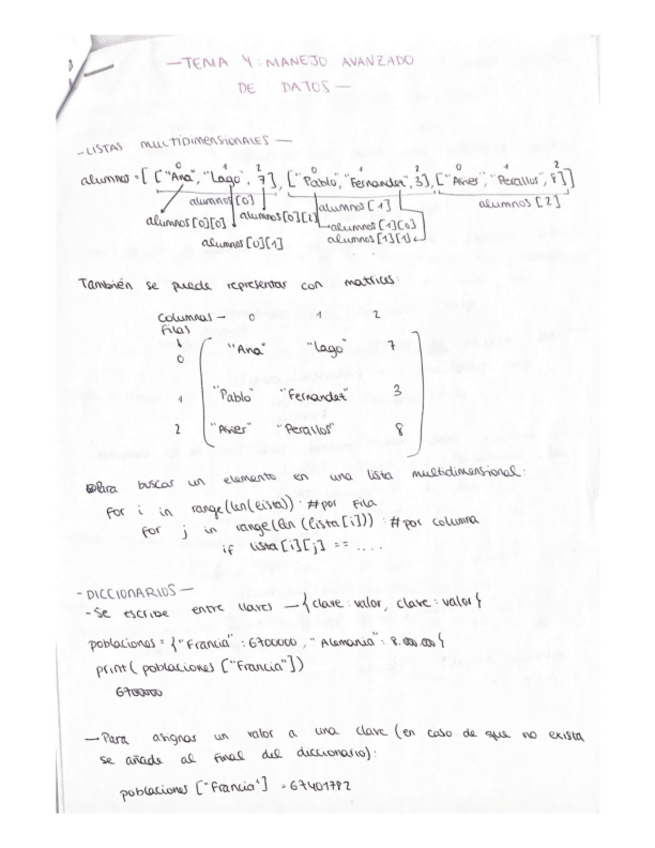 —TEMA 4: MANEJO AVANZADO
DE DATOS—
-LISTAS MULTIDIMENSIONALES—
0 1 2 0 1 2 0 1 2
alumnos = [ ["Ana", "Lago", 7], ["Pablo", "Fernandez", 3], ["Asier", "Perallos", 8]]
alumnos[0] alumnos[1] alumnos[2]
alumnos[0][0] alumnos[0][2] alumnos[1][0]
alumnos[0][1] alumnos[1][1]
También se puede representar con matrices:
Columnas — 0 1 2
Filas
0 "Ana" "Lago" 7
1 "Pablo" "Fernandez" 3
2 "Asier" "Perallos" 8
Para buscar un elemento en una lista multidimensional:
for i in range(len(lista)): #por fila
for j in range(len(lista[i])): #por columna
if lista[i][j] == ....
-DICCIONARIOS—
-Se escribe entre llaves —{clave: valor, clave: valor}
poblaciones = {"Francia": 6700000, "Alemania": 8.000.000}
print(poblaciones ["Francia"])
6700000
—Para asignar un valor a una clave (en caso de que no exista
se añade al final del diccionario):
poblaciones ["Francia"] = 67401782